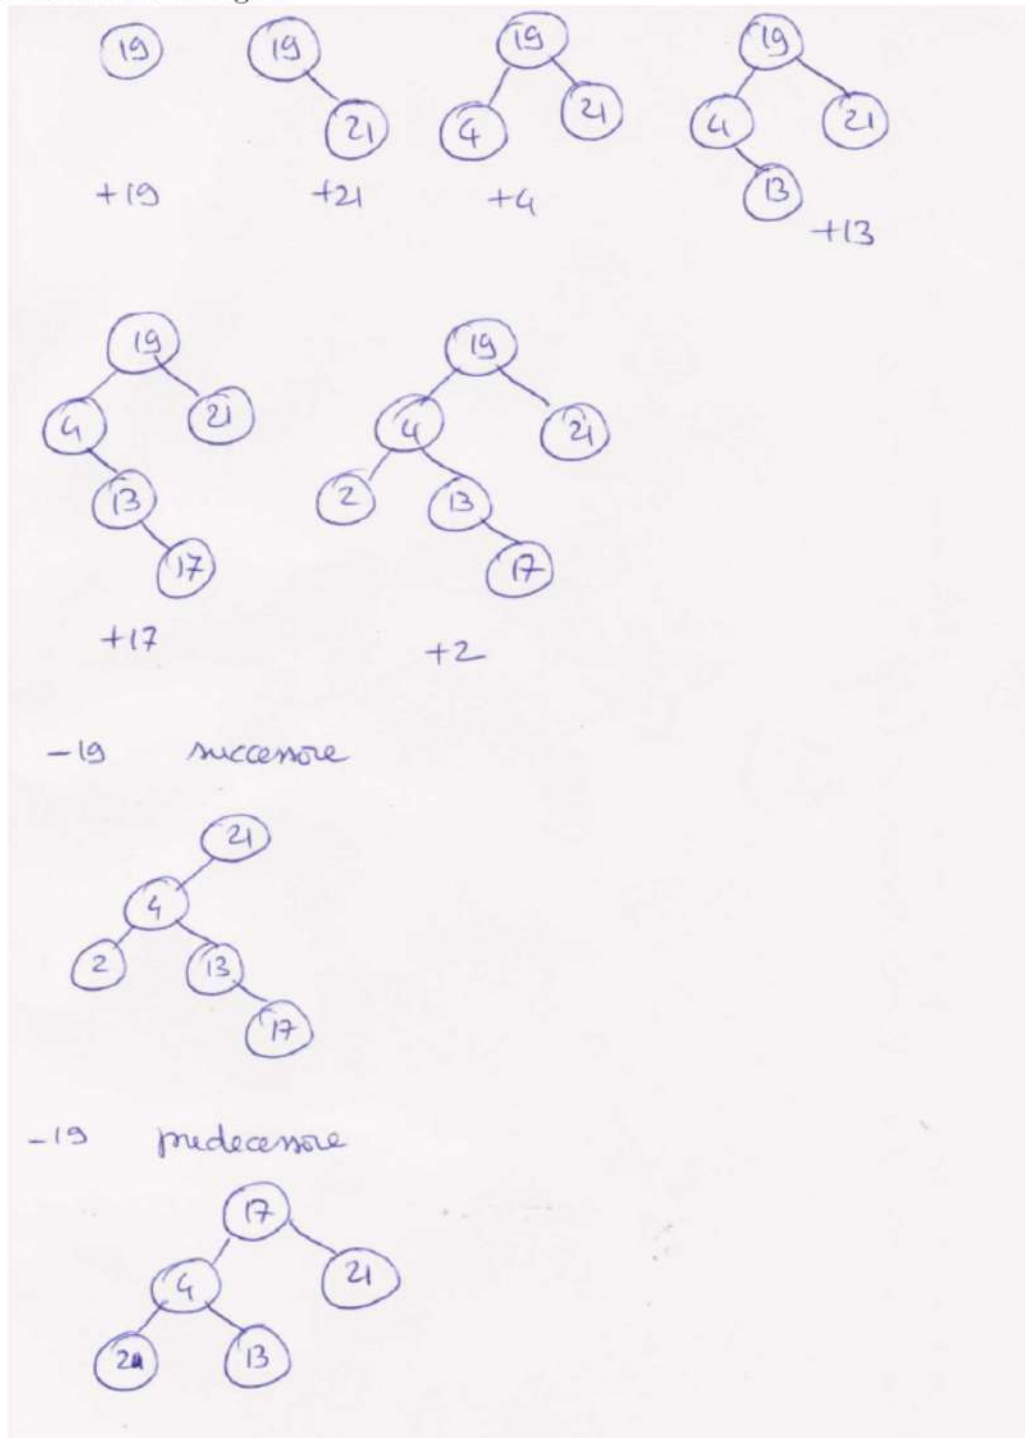 19 19 19 19
21 4 21 4 21
13
+19 +21 +4
+13
19 19
4 21 4 21
13 2 13
17 17
+17 +2
-19 successore
21
4
2 13
17
-19 predecessore
17
4 21
2 13